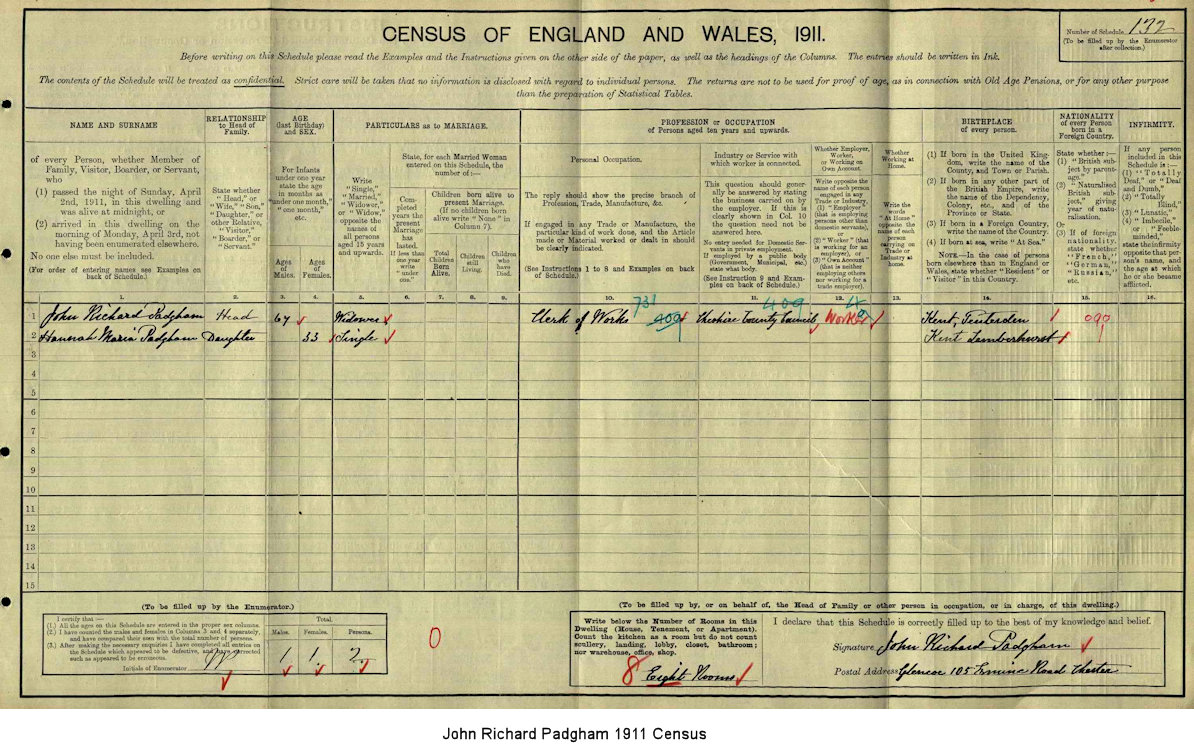 CENSUS OF ENGLAND AND WALES, 1911.
Number of Schedule 132
(To be filled up by the Enumerator
after collection.)
Before writing on this Schedule please read the Examples and the Instructions given on the other side of the paper, as well as the headings of the Columns. The entries should be written in Ink.
The contents of the Schedule will be treated as confidential. Strict care will be taken that no information is disclosed with regard to individual persons. The returns are not to be used for proof of age, as in connection with Old Age Pensions, or for any other purpose
than the preparation of Statistical Tables.
NAME AND SURNAME
of every Person, whether Member of
Family, Visitor, Boarder, or Servant,
who
(1) passed the night of Sunday, April
2nd, 1911, in this dwelling and
was alive at midnight, or
(2) arrived in this dwelling on the
morning of Monday, April 3rd, not
having been enumerated elsewhere.
No one else must be included.
(For order of entering names see Examples on
back of Schedule.)
RELATIONSHIP
to Head of
Family.
State whether
"Head," or
"Wife," "Son,"
"Daughter," or
other Relative,
"Visitor,"
"Boarder," or
"Servant."
AGE
(last Birthday)
and SEX.
For Infants
under one year
state the age
in months as
"under one month,"
"one month,"
etc.
Ages
of
Males.
Ages
of
Females.
PARTICULARS as to MARRIAGE.
Write
"Single,"
"Married,"
"Widower,"
or "Widow,"
opposite the
names of
all persons
aged 15 years
and upwards.
State, for each Married Woman
entered on this Schedule, the
number of:—
Completed
years the
present
Marriage
has
lasted.
If less than
one year
write
"under
one."
Children born alive to
present Marriage.
(If no children born
alive write "None" in
Column 7).
Total
Children
Born
Alive.
Children
still
Living.
Children
who
have
Died.
PROFESSION or OCCUPATION
of Persons aged ten years and upwards.
Personal Occupation.
The reply should show the precise branch of
Profession, Trade, Manufacture, &c.
If engaged in any Trade or Manufacture, the
particular kind of work done, and the Article
made or Material worked or dealt in should
be clearly indicated.
(See Instructions 1 to 8 and Examples on back
of Schedule.)
Industry or Service with
which worker is connected.
This question should gener-
ally be answered by stating
the business carried on by
the employer. If this is
clearly shown in Col. 10
the question need not be
answered here.
No entry needed for Domestic Ser-
vants in private employment.
If employed by a public body
(Government, Municipal, etc.)
state what body.
(See Instruction 9 and Exam-
ples on back of Schedule.)
Whether Employer,
Worker,
or Working on
Own Account.
Write opposite the
name of each person
engaged in any
Trade or Industry,
(1) "Employer"
(that is employing
persons other than
domestic servants),
or
(2) "Worker" (that
is working for an
employer), or
(3) "Own Account"
(that is neither
employing others
nor working for a
trade employer).
Whether
Working at
Home.
Write the
words
"At Home"
opposite the
name of each
person
carrying on
Trade or
Industry at
home.
BIRTHPLACE
of every person.
(1) If born in the United King-
dom, write the name of the
County, and Town or Parish.
(2) If born in any other part of
the British Empire, write
the name of the Dependency,
Colony, etc., and of the
Province or State.
(3) If born in a Foreign Country,
write the name of the Country.
(4) If born at sea, write "At Sea."
NOTE.—In the case of persons
born elsewhere than in England or
Wales, state whether "Resident" or
"Visitor" in this Country.
NATIONALITY
of every Person
born in a
Foreign Country.
State whether:—
(1) "British sub-
ject by parent-
age."
(2) "Naturalised
British sub-
ject," giving
year of natu-
ralisation.
Or
(3) If of foreign
nationality,
state whether
"French,"
"German,"
"Russian,"
etc.
INFIRMITY.
If any person
included in this
Schedule is:—
(1) "Totally
Deaf," or "Deaf
and Dumb,"
(2) "Totally
Blind,"
(3) "Lunatic,"
(4) "Imbecile,"
or "Feeble-
minded,"
state the infirmity
opposite that per-
son's name, and
the age at which
he or she became
afflicted.
1. 2. 3. 4. 5. 6. 7. 8. 9. 10. 11. 12. 13. 14. 15. 16.
731 409 4
1 John Richard Padgham Head 67 Widower Clerk of Works 409 Cheshire County Council Worker Kent, Tenterden 090
2 Hannah Maria Padgham Daughter 33 Single Kent Lamberhurst
3
4
5
6
7
8
9
10
11
12
13
14
15
(To be filled up by the Enumerator.)
I certify that:—
(1.) All the ages on this Schedule are entered in the proper sex columns.
(2.) I have counted the males and females in Columns 3 and 4 separately,
and have compared their sum with the total number of persons.
(3.) After making the necessary enquiries I have completed all entries on
the Schedule which appeared to be defective, and have corrected
such as appeared to be erroneous.
Initials of Enumerator
Total.
Males. Females. Persons.
1 1 2
0
(To be filled up by, or on behalf of, the Head of Family or other person in occupation, or in charge, of this dwelling.)
Write below the Number of Rooms in this
Dwelling (House, Tenement, or Apartment).
Count the kitchen as a room but do not count
scullery, landing, lobby, closet, bathroom;
nor warehouse, office, shop.
8 Eight Rooms
I declare that this Schedule is correctly filled up to the best of my knowledge and belief.
Signature John Richard Padgham
Postal Address Glencoe 105 Ermine Road Chester
John Richard Padgham 1911 Census